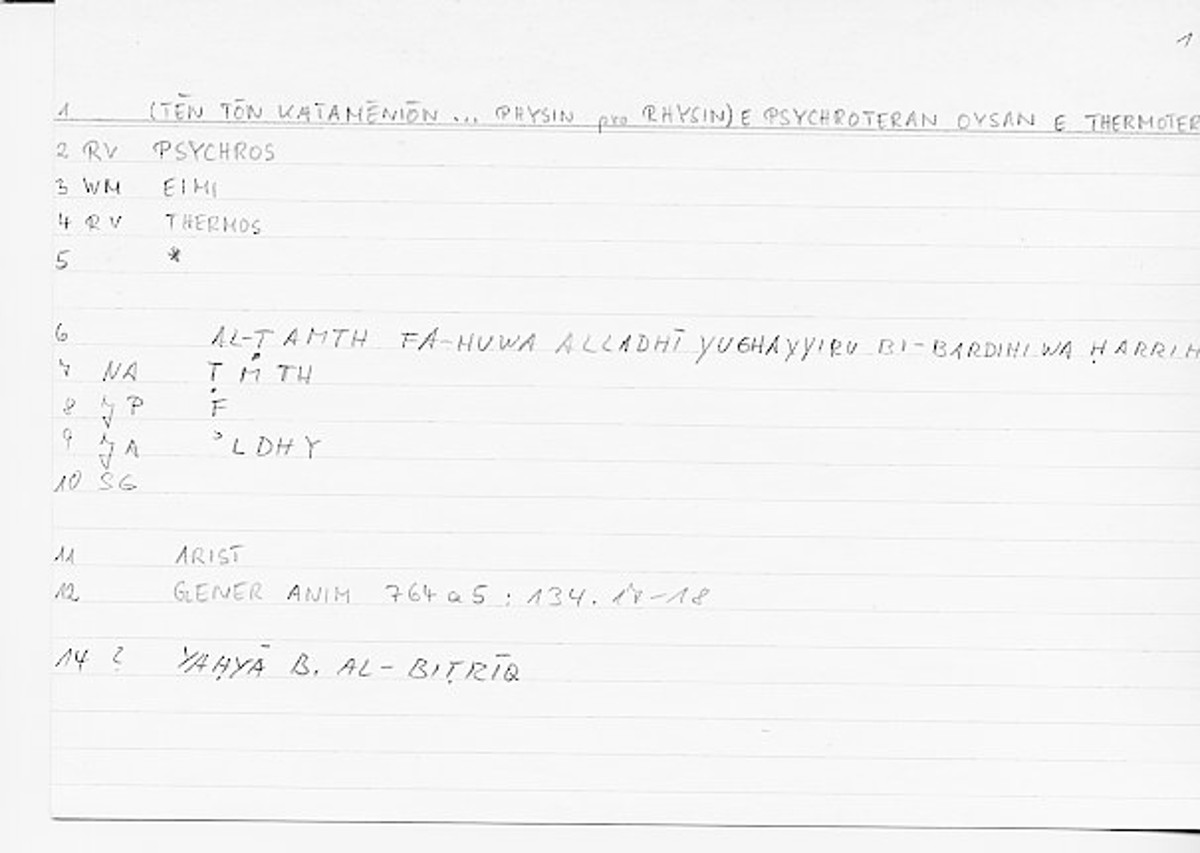 1
1 (TĒN TŌN KATAMĒNIŌN ... PHYSIN pro RHYSIN) E PSYCHROTERAN OYSAN E THERMOTER
2 RV PSYCHROS
3 WM EIMI
4 RV THERMOS
5 *
6 AL-ṬAMTH FA-HUWA ALLADHĪ YUGHAYYIRU BI-BARDIHI WA ḤARRIH
7 NA ṬMTH
8 JP F
9 JA ʾLDHY
10 SG
11 ARIST
12 GENER ANIM 764 a 5 : 134.
14 ? YAḤYĀ B. AL-BIṬRĪQ